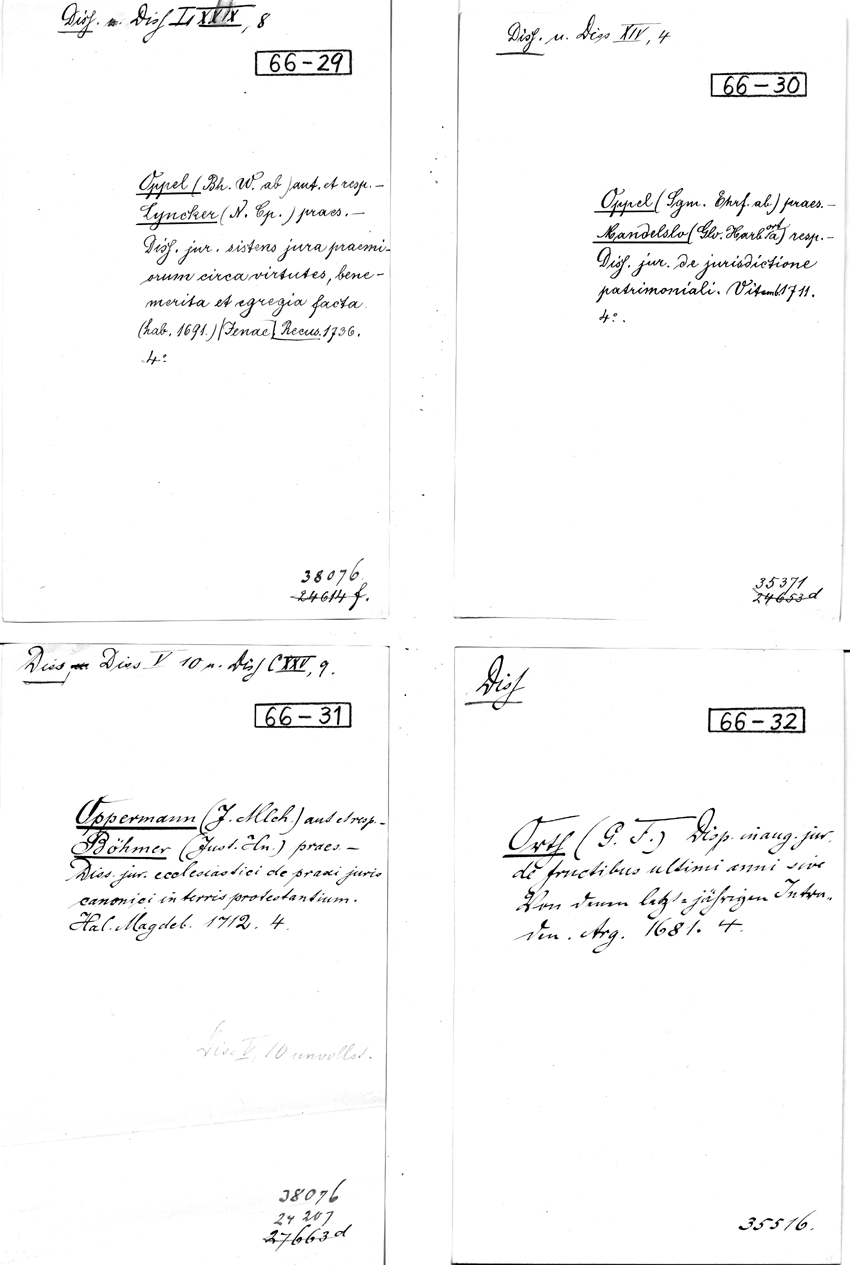 Diss. u. Diss LXXXIX, 8
66-29
Oppel (Bh. W. ab) aut. et resp. –
Lyncker (N. Cp.) praes. –
Diss. jur. sistens jura praemi-
orum circa virtutes, bene-
merita et egregia facta
(hab. 1691.) [Jenae] Recus. 1736.
4°
38076
24614 f.
Diss. u. Diss XIV, 4
66-30
Oppel (Sgm. Ehrf. ab) praes. –
Mandelslo (Glo. Harb ort a) resp. –
Diss. jur. de jurisdictione
patrimoniali. Vitemb. 1711.
4°.
35371
24653 d
Diss, u. Diss V 10 u. Diss CXXV, 9.
66-31
Oppermann (J. Mlch.) aut et resp. –
Böhmer (Just. Hn.) praes –
Diss. jur. ecclesiastici de praxi juris
canonici in terris protestantium.
Hal. Magdeb. 1712. 4.
Diss V, 10 unvollst.
38076
24 207
27663 d
Diss
66-32
Orth (G. F.) Disp. inaug. jur.
de fructibus ultimi anni sive
Von denen letzt-jährigen Intra-
den. Arg. 1681. 4.
35516.